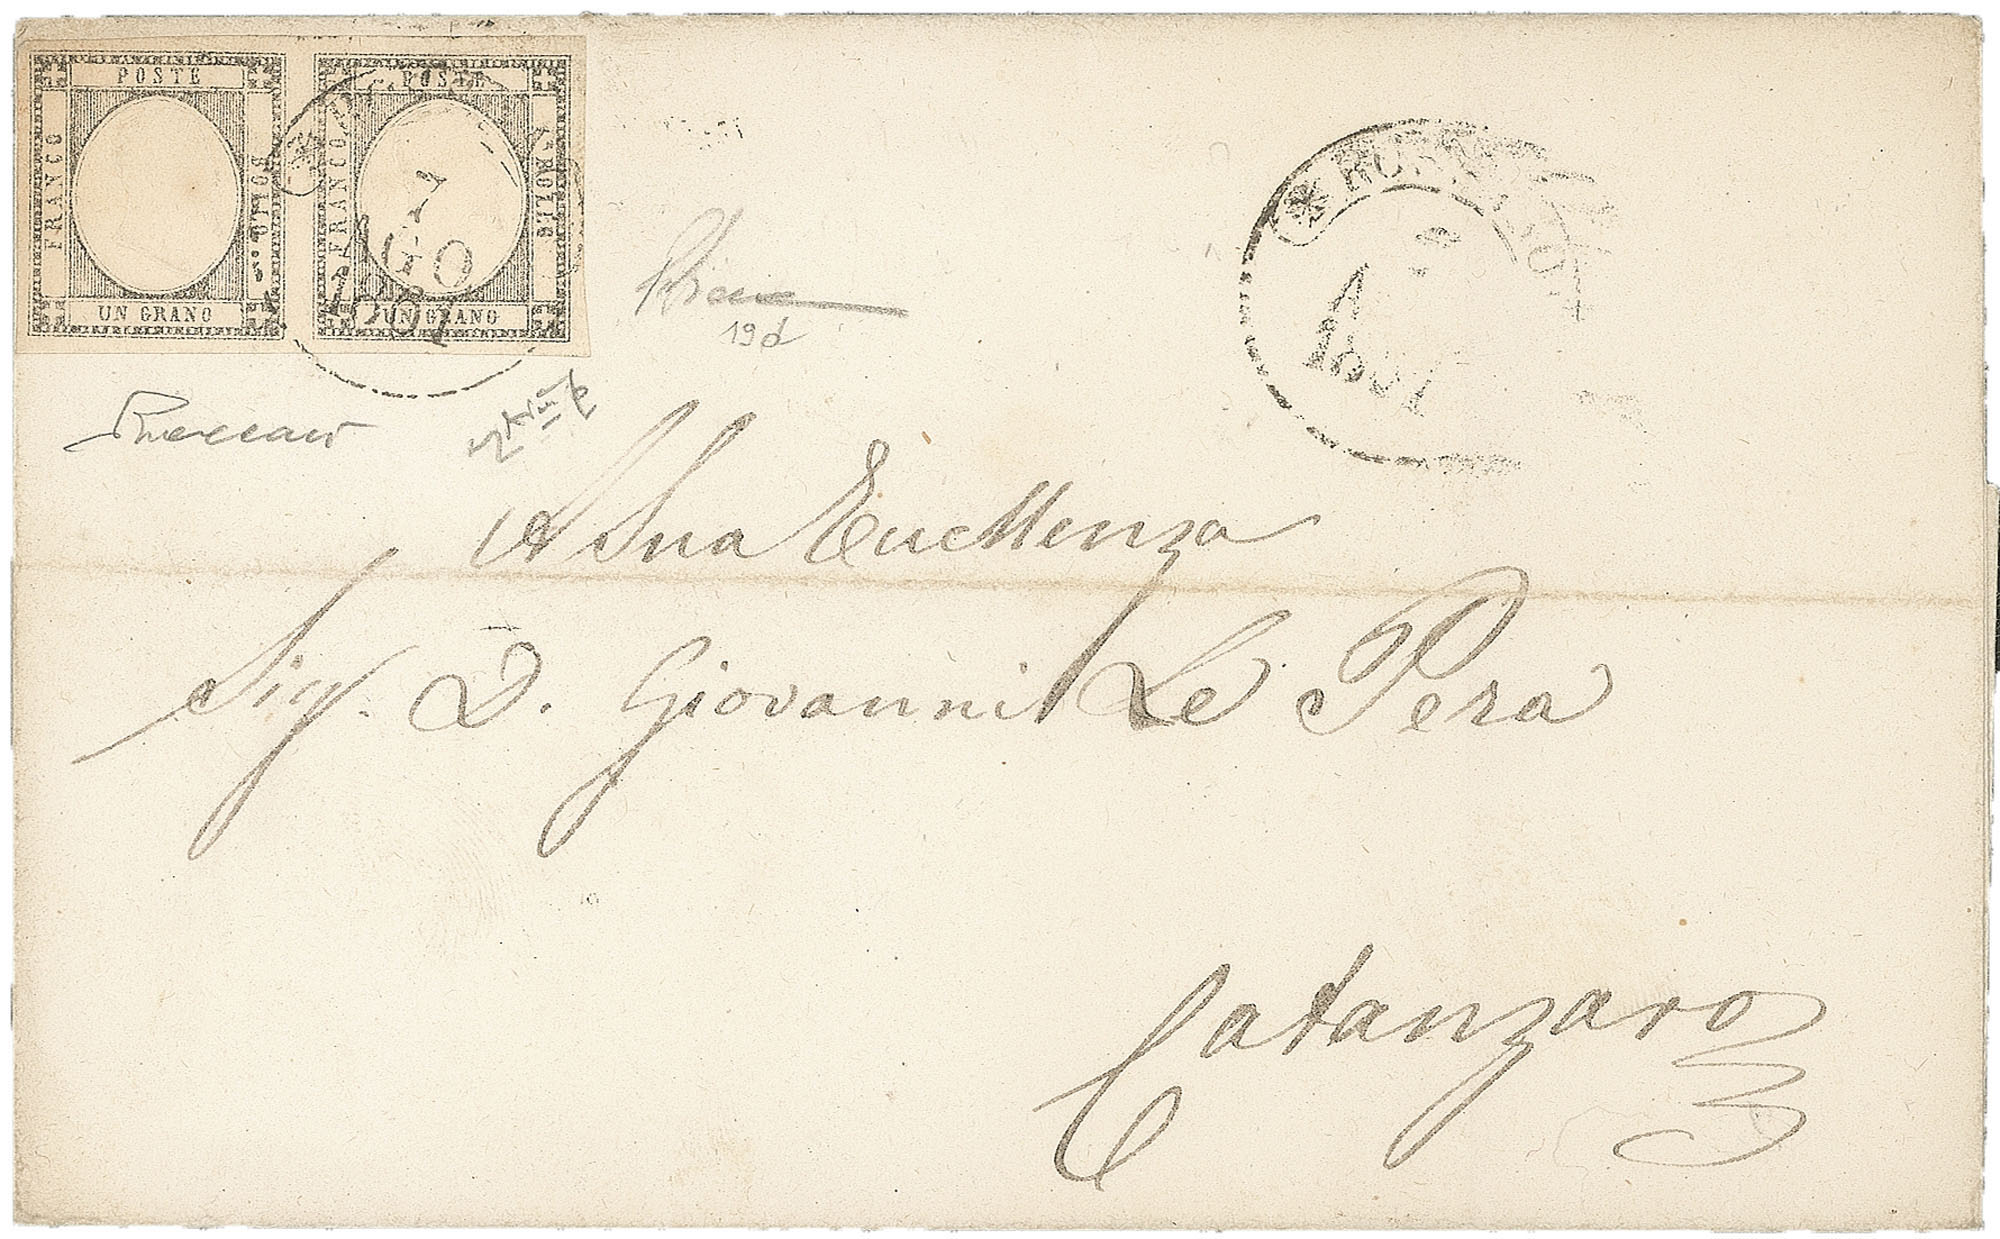 POSTE
FRANCO
BOLLO
UN GRANO
POSTE
FRANCO
BOLLO
UN GRANO
7
AGO
1861
19d
A Sua Eccellenza
Sig. D. Giovanni Le Pera
Catanzaro